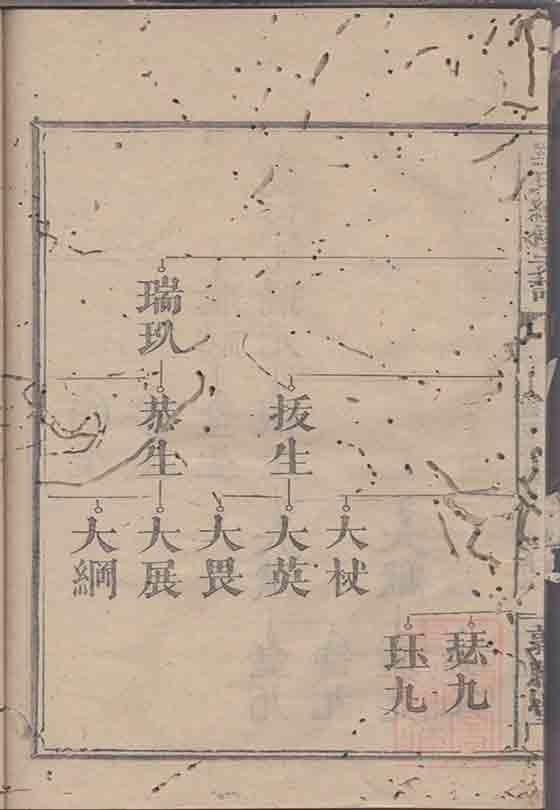 瑟九
珏九
大杖
拔生
大英
大畏
瑞玖
恭生
大展
大綱